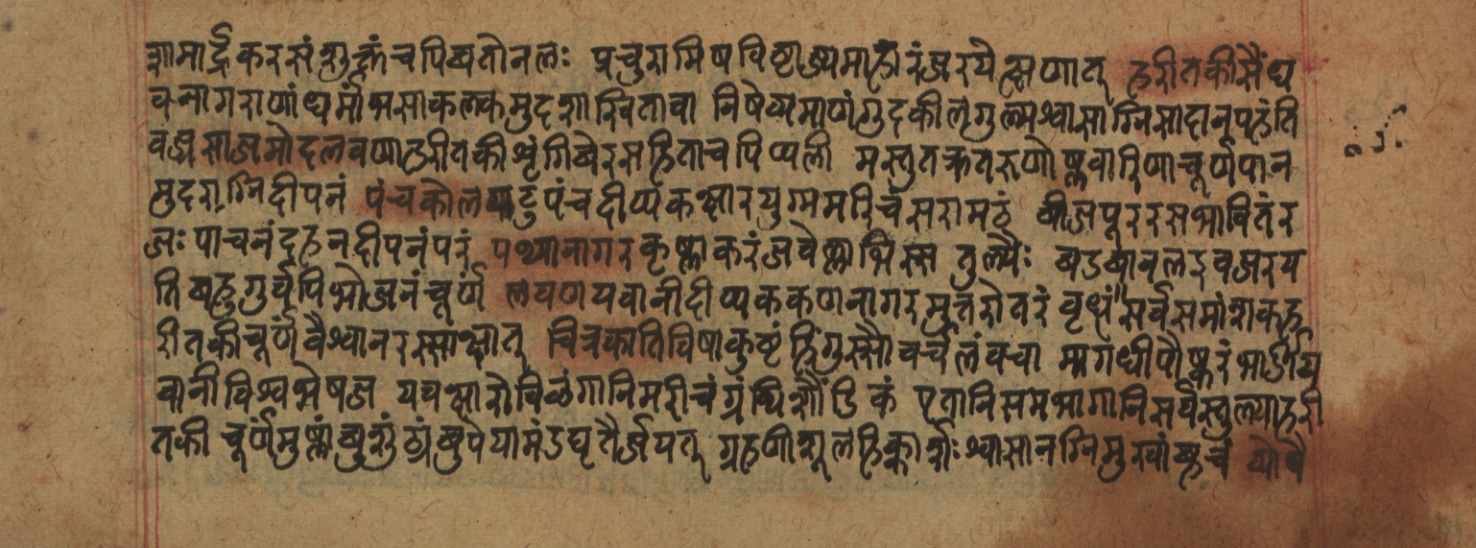 शामार्द्रकरसं शुक्तं च पिद्यतोनलः प्रचुरामिषविष्टाज्यमाहारं जरयेत्क्षणात् हरीतकीसैंध
वनागराणां धर्मांभसाकल्कमुदशाखितावा निषेव्यमाणं गुदकीलगुल्मश्वासाग्निसादानुपहंति
वज्रसाजमोदलवणाहरीतकी शृंगिवेरसहिताच पिप्पली मस्तुतक्रतरुणोष्णवारिणाचूर्णपान
मुदराग्निदीपनं पंचकोलपटुपंचदीप्यकक्षारयुग्ममरिचं सरामठं बीजपूररसभावितं र
जः पाचनं दहनदीपनं परं पथ्यानागरकृष्णाकरंजवेल्लाग्निस्स तुल्यैः बडबानल इव जरय
ति बहुगुर्वपि भोजनं चूर्णं लवणयवानीदीप्यककणनागरमुत्तरोतरं वृद्धं सर्वसमांशकह
रीतकीचूर्णं वैश्वानरस्साक्षात् चित्रकातिविषाकुष्टं हिंगुस्सौवर्चलं वचा मागधीपौष्करं भार्ङीय
वानीविश्वभेषज यवक्षारो विळंगानिमरीचं ग्रंथिशौंडिकं एतानि समभागानि सर्वैस्तुल्याहरी
तकी चूर्णमुष्णांबुशुंठ्यंबुपेयामंडघृतैर्जयेत् ग्रहणीशूलहिक्कार्शः श्वासानग्निमुखाह्वयं